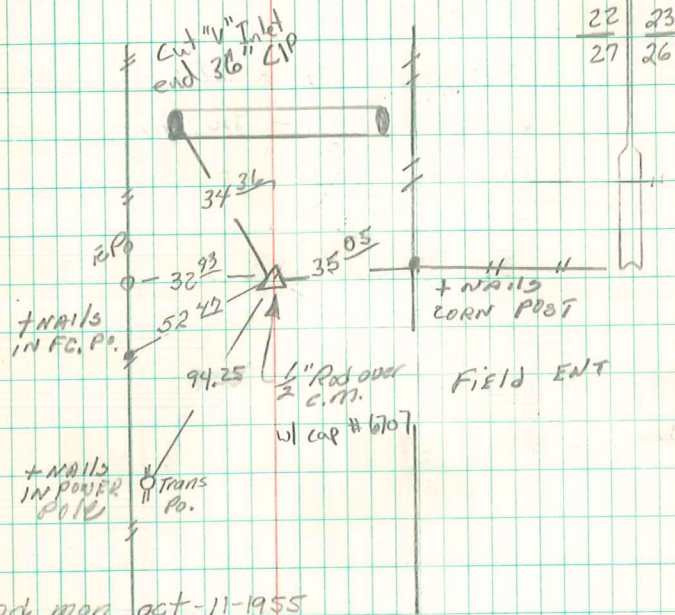 22 | 23
27 | 26
Cut "V" Inlet
end 36" CIP
34 36
32 93
35 05
52 47
+ NAILS
IN FC. PO.
+ NAILS
CORN POST
94.25
1/2" Rod over
c.m.
w/ cap #6707
Field ENT
+ NAILS
IN POWER
Pole
Trans
Po.
mon oct-11-1955